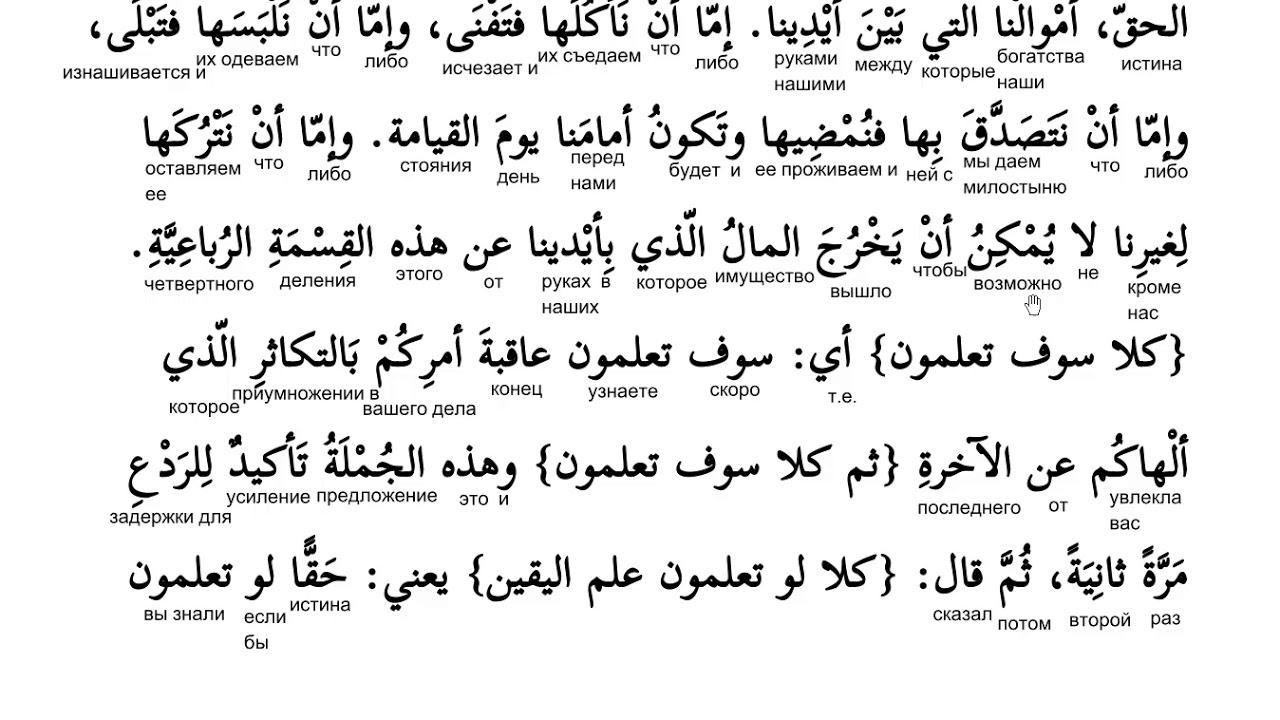 الحقّ، أمْوالُنا التي بَيْنَ أيْدِينا. إمّا أنْ نَأكُلَها فتَفْنَى، وإمّا أنْ نَلْبَسَها فتَبْلَى،
истина богатства наши которые между руками нашими либо что их съедаем исчезает и либо что их одеваем изнашивается и
وإمّا أنْ نَتَصَدَّقَ بِها فنُمْضِيها وتَكونُ أمامَنا يومَ القيامة. وإمّا أنْ نَتْرُكَها
либо что мы даем милостыню ней с ее проживаем и будет и перед нами день стояния либо что оставляем ее
لِغيرِنا لا يُمْكِنُ أنْ يَخْرُجَ المالُ الّذي بِأيْدينا عن هذه القِسْمَةِ الرُباعِيَّةِ.
кроме нас не возможно чтобы вышло имущество которое руках в наших от этого деления четвертного
{كلا سوف تعلمون} أي: سوف تعلمون عاقبةَ أمرِكُمْ بَالتكاثرِ الّذي
т.е. скоро узнаете конец вашего дела приумножении в которое
ألْهاكُم عن الآخرةِ {ثم كلا سوف تعلمون} وهذه الجُمْلَةُ تَأكيدٌ لِلرَدْعِ
увлекла вас от последнего это и предложение усиление задержки для
مَرَّةً ثانِيَةً، ثُمَّ قال: {كلا لو تعلمون علم اليقين} يعني: حَقًّا لو تعلمون
раз второй потом сказал истина если бы вы знали